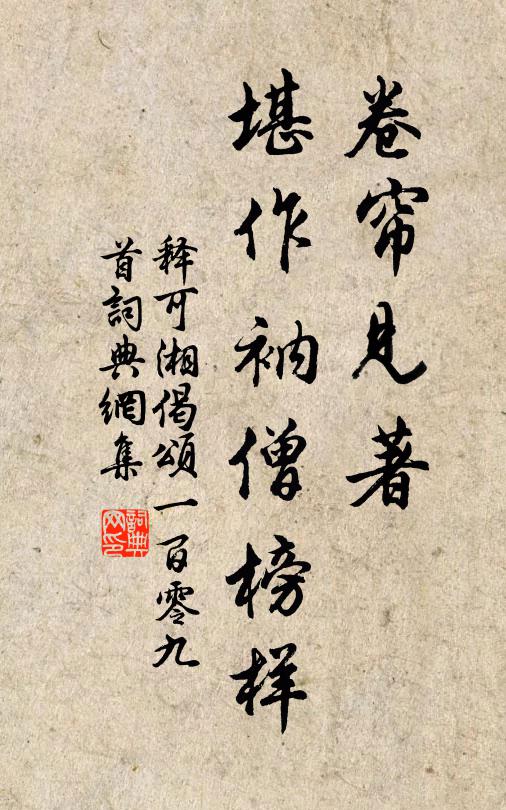 卷帘见著
堪作衲僧榜样
释可湘偈颂一百零九
首詞典網集
詞典
网印